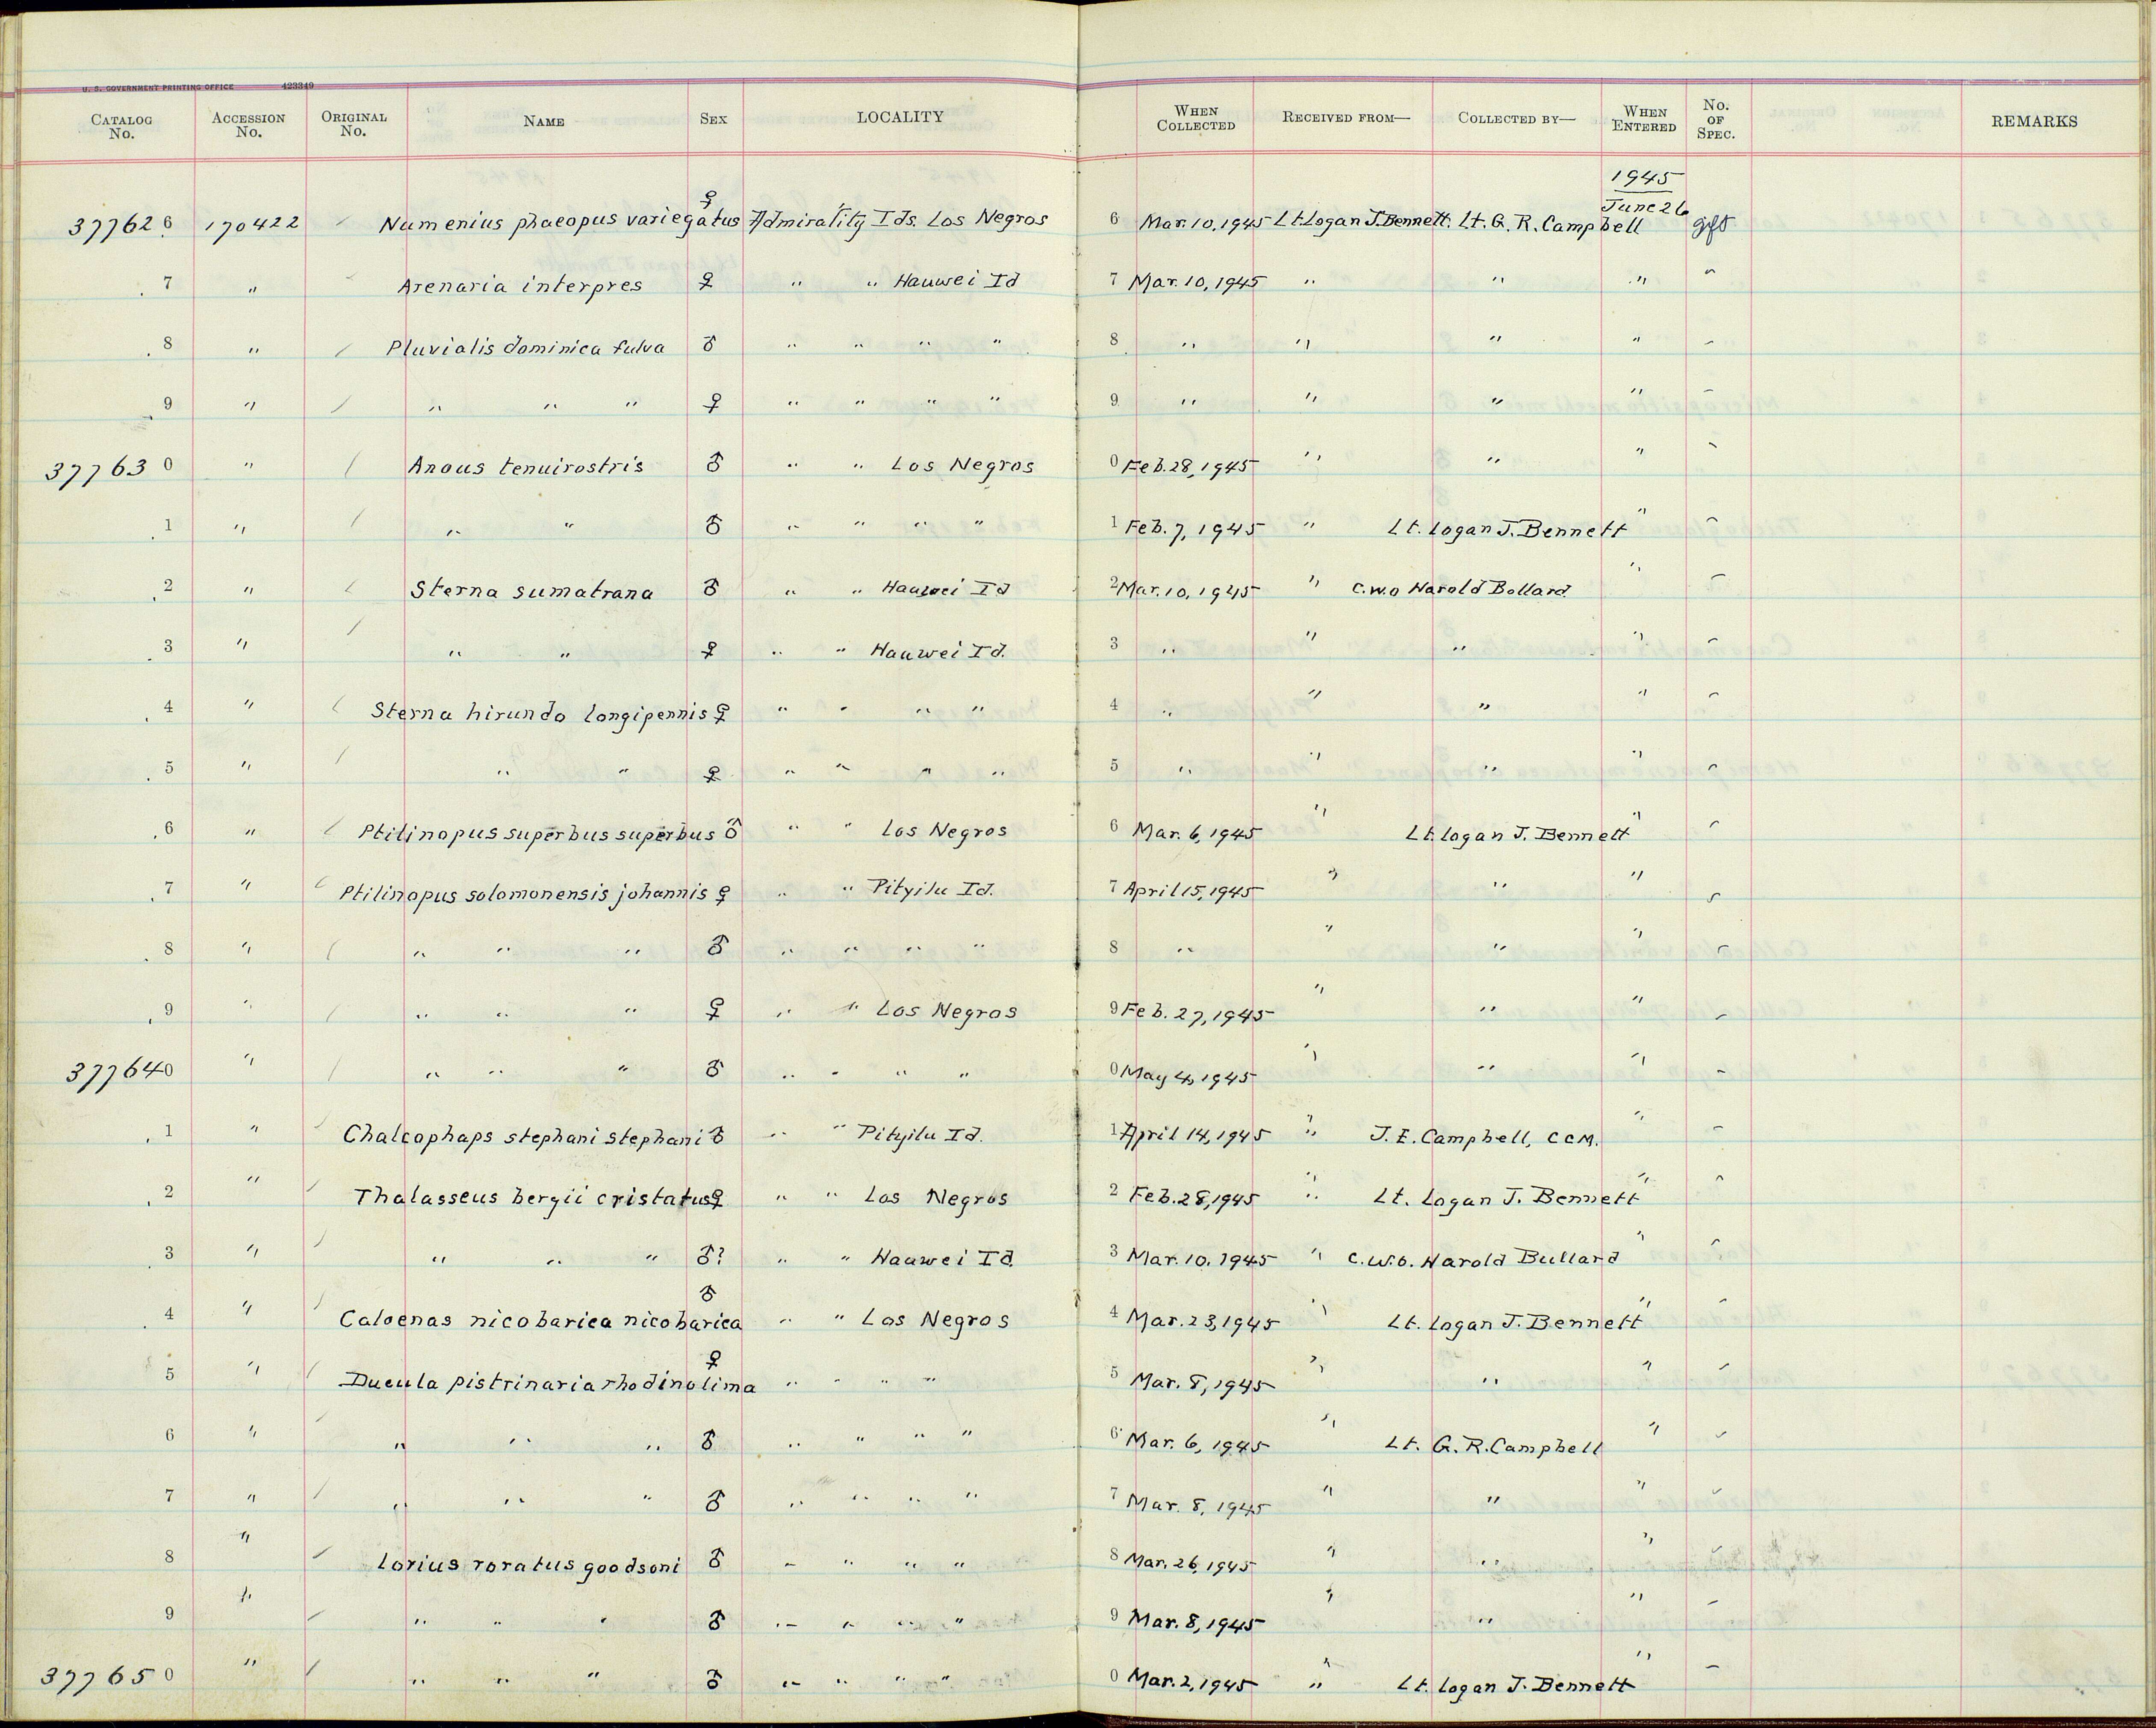 U. S. GOVERNMENT PRINTING OFFICE 423349
CATALOG No. ACCESSION No. ORIGINAL No. NAME SEX LOCALITY WHEN COLLECTED RECEIVED FROM— COLLECTED BY— WHEN ENTERED No. OF SPEC. REMARKS
1945
377626 170422 Numenius phaeopus variegatus ♀ Admirality Ids. Los Negros 6 Mar. 10, 1945 Lt. Logan J. Bennett. Lt. G. R. Campbell June 26 gift
7 " Arenaria interpres ♀ " " Hauwei Id 7 Mar. 10, 1945 " " "
8 " Pluvialis dominica fulva ♂ " " " " 8 " " " "
9 " " " " ♀ " " " " 9 " " " "
377630 " Anous tenuirostris ♂ " " Los Negros 0 Feb. 28, 1945 " " "
1 " " " ♂ " " " " 1 Feb. 7, 1945 " Lt. Logan J. Bennett "
2 " Sterna sumatrana ♂ " " Hauwei Id 2 Mar. 10, 1945 " C.W.O Harold Bollard "
3 " " " ♀ " " Hauwei Id. 3 " " " "
4 " Sterna hirundo longipennis ♀ " " " " 4 " " " "
5 " " " ♀ " " " " 5 " " " "
6 " Ptilinopus superbus superbus ♂ " " Los Negros 6 Mar. 6, 1945 " Lt. Logan J. Bennett "
7 " Ptilinopus solomonensis johannis ♀ " " Pityilu Id. 7 April 15, 1945 " " "
8 " " " " ♂ " " " " 8 " " " "
9 " " " " ♀ " " Los Negros 9 Feb. 27, 1945 " " "
377640 " " " " ♂ " " " " 0 May 4, 1945 " " "
1 " Chalcophaps stephani stephani ♂ " " Pityilu Id. 1 April 14, 1945 " J. E. Campbell, CCM. "
2 " Thalasseus bergii cristatus ♀ " " Los Negros 2 Feb. 28, 1945 " Lt. Logan J. Bennett "
3 " " " " ♂? " " Hauwei Id. 3 Mar. 10, 1945 " C.W.O. Harold Bullard "
4 " Caloenas nicobarica nicobarica ♂ " " Los Negros 4 Mar. 23, 1945 " Lt. Logan J. Bennett "
5 " Ducula pistrinaria rhodinolima ♀ " " " " 5 Mar. 8, 1945 " " "
6 " " " " ♂ " " " " 6 Mar. 6, 1945 " Lt. G. R. Campbell "
7 " " " " ♂ " " " " 7 Mar. 8, 1945 " " "
8 " Lorius roratus goodsoni ♂ " " " " 8 Mar. 26, 1945 " " "
9 " " " " ♂ " " " " 9 Mar. 8, 1945 " " "
377650 " " " " ♂ " " " " 0 Mar. 2, 1945 " Lt. Logan J. Bennett "